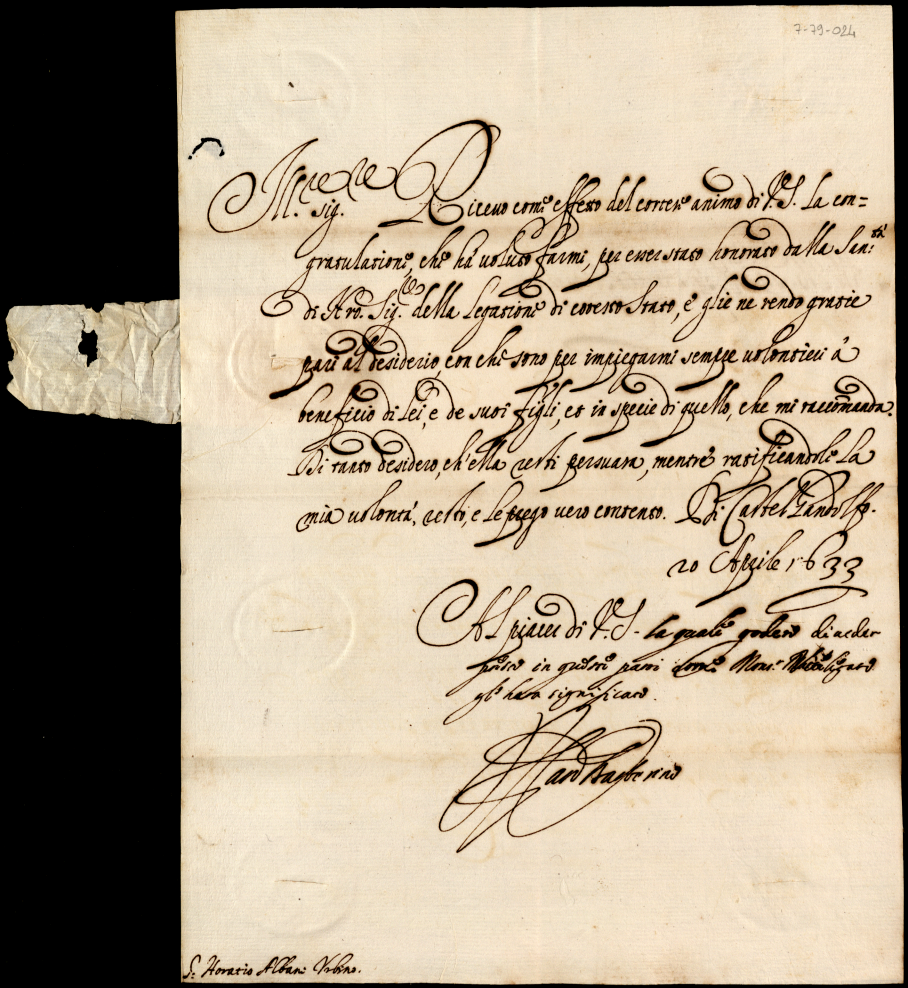 7-79-024
Ill.re Sig.re Ricevo come effetto del cortese animo di V.S. la con=
gratulatione, che ha voluto farmi, per esser stato honorato dalla San.tà
di N.ro Sig.re della Legatione di cotesto Stato, e gliene rendo gratie
pari al desiderio, con che sono per impiegarmi sempre volontieri à
beneficio di Lei, e de suoi figli, et in specie di quello, che mi raccomanda.
Di tanto desidero, ch'ella resti persuasa, mentre ratificandole la
mia volontà, resto, e le prego vero contento. Di Castel Gandolfo.
20 Aprile 1633
Al piacer di V.S. la quale godero di veder
presto in questi parti come Mons.r Vicelegato
gli havrà significato.
Card Barberino
S.r Horatio Albani Urbino.